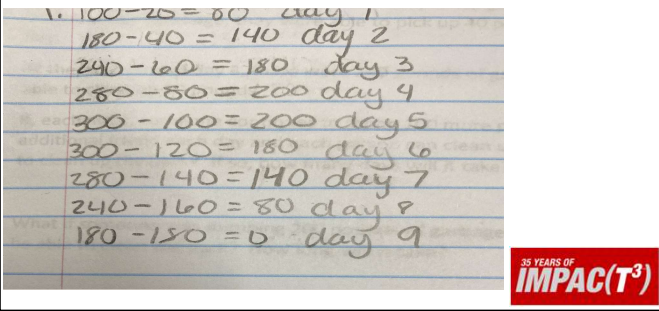 1. 100-20=80 day 1
180-40 = 140 day 2
240-60 = 180 day 3
280-80=200 day 4
300 - 100=200 day 5
300-120= 180 day 6
280-140=140 day 7
240-160=80 day 8
180-180 =0 day 9
35 YEARS OF
IMPAC(T³)